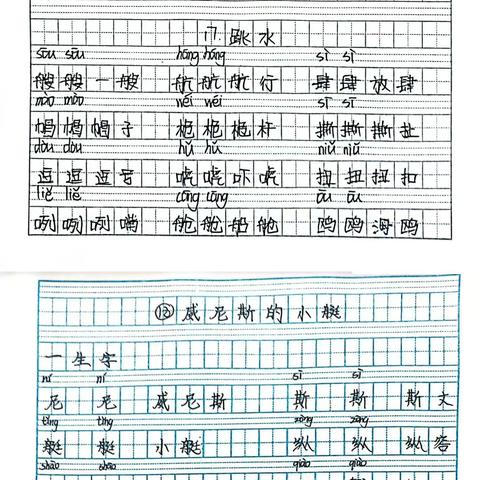 17.跳水
sōu sōu háng háng sì sì
艘艘一艘 航航航行 肆肆放肆
mào mào wéi wéi sī sī
帽帽帽子 桅桅桅杆 撕撕撕扯
dòu dòu hǔ hǔ niǔ niǔ
逗逗逗号 唬唬吓唬 扭扭扭扣
liě liě cāng cāng ōu ōu
咧咧咧嘴 舱舱船舱 鸥鸥海鸥
⑱威尼斯的小艇
一生字
ní ní sī sī
尼 尼 威尼斯 斯 斯 斯文
tǐng tǐng zòng zòng
艇 艇 小艇 纵 纵 纵
shāo shāo qiào qiào